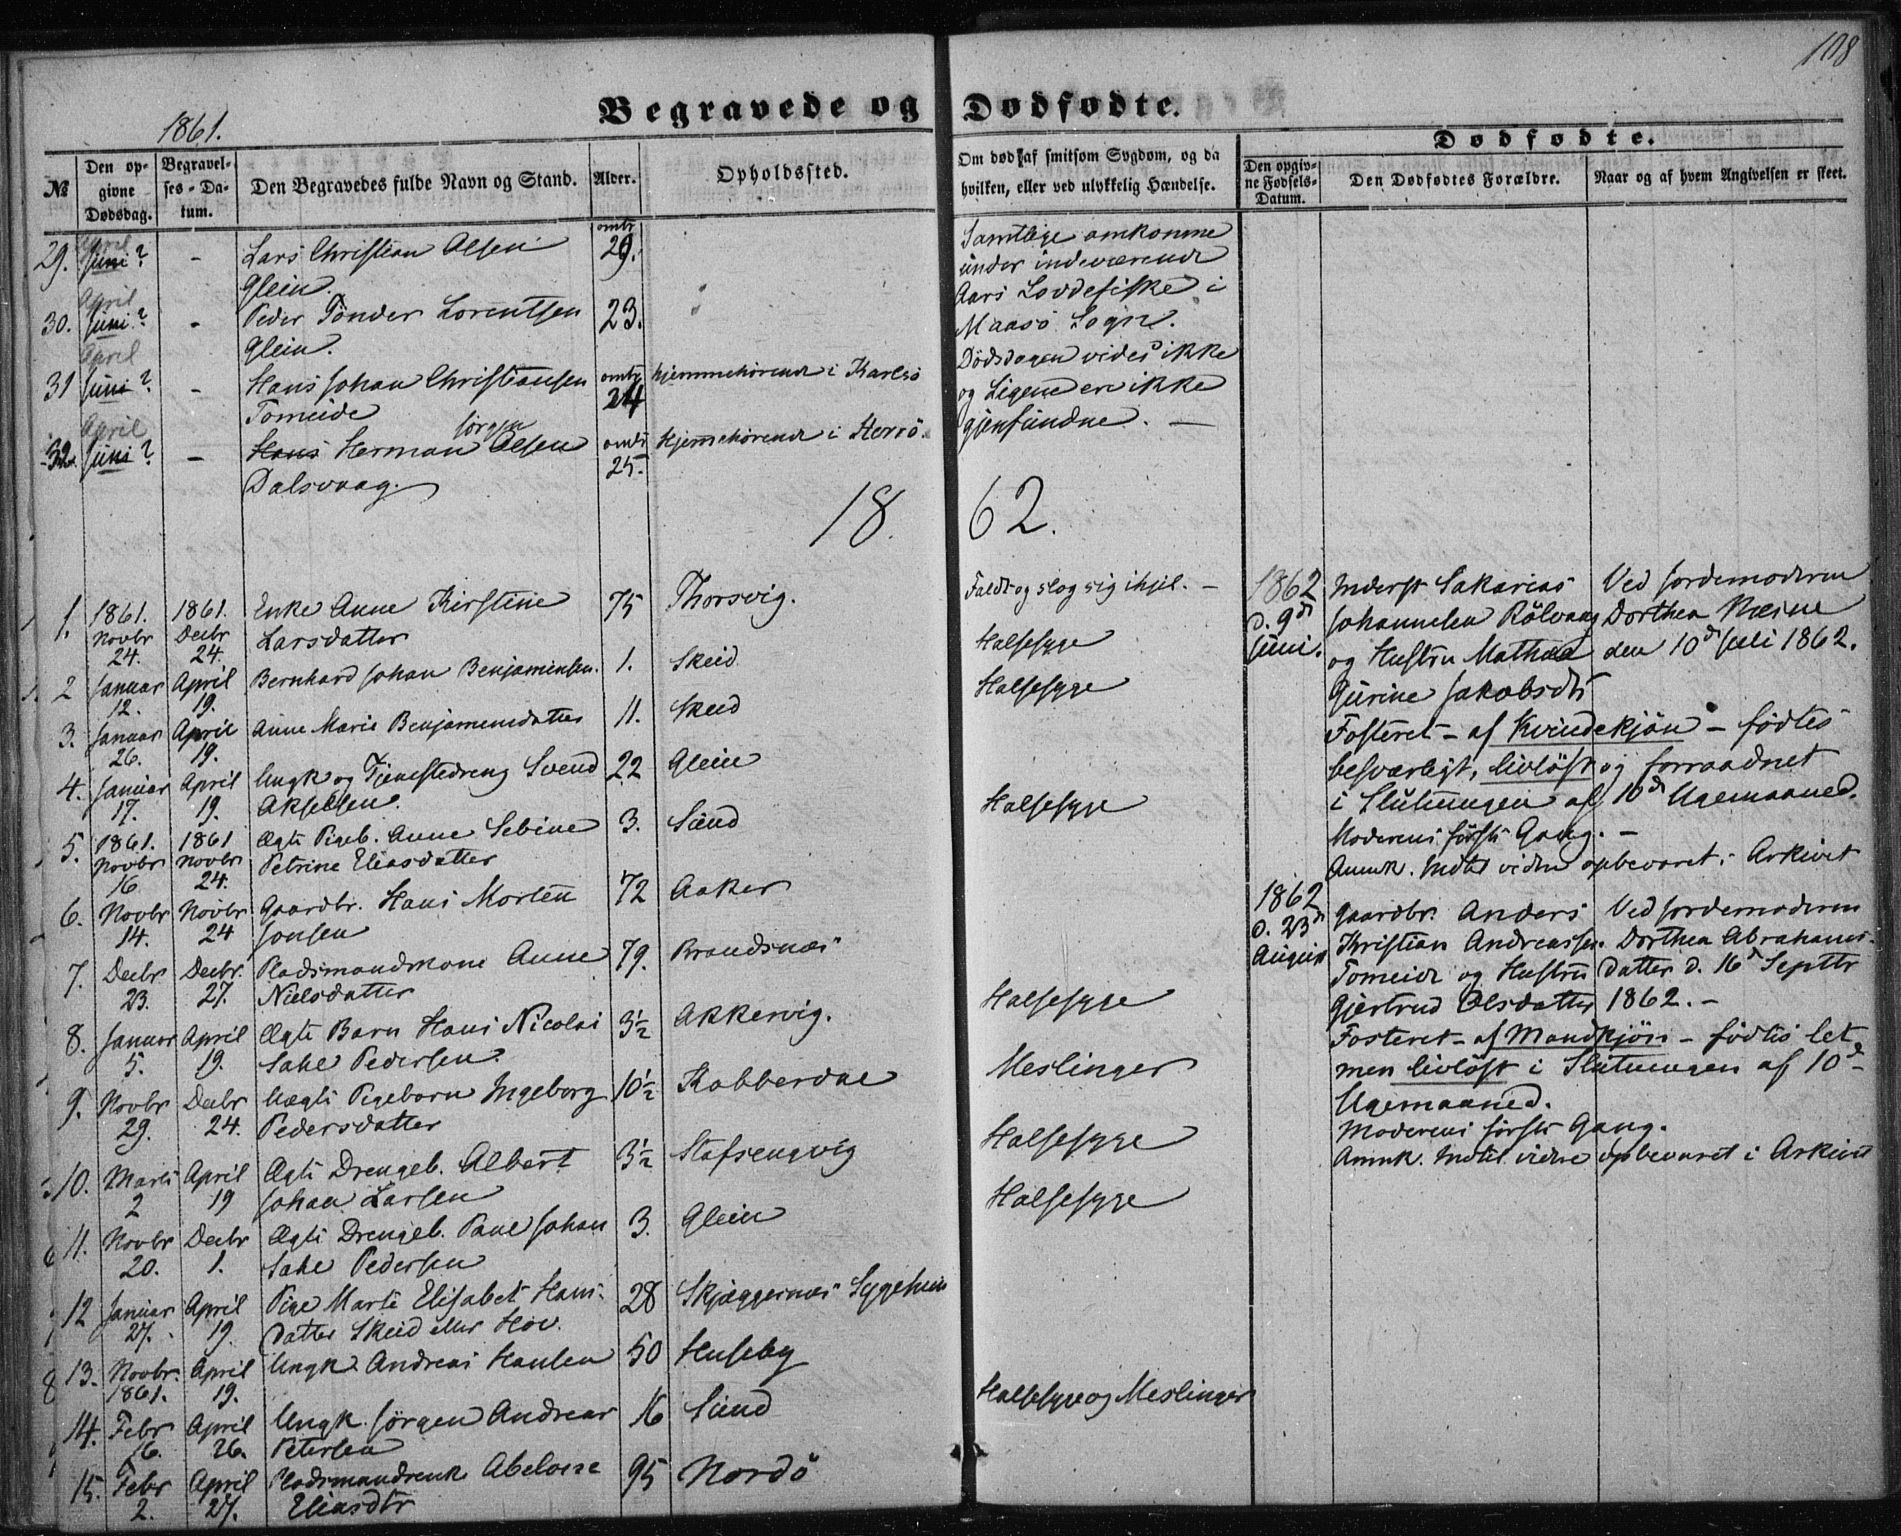 108
Begravede og Dødfødte.
1861.
Dødfødte.
№
Den opgivne Dødsdag.
Begravelses-Datum.
Den Begravedes fulde Navn og Stand.
Alder.
Opholdssted.
Om død af smitsom Sygdom, og da hvilken, eller ved ulykkelig Hændelse.
Den opgivne Fødsels-Datum.
Den Dødfødtes Forældre.
Naar og af hvem Angivelsen er skeet.
29. April Juni? - Lars Christian Olsen omtr 29.
Glein.
30. April Juni? - Peder Tönder Lorentsen 23.
Glein.
31 April Juni? - Hans Johan Christiansen omtr 24 hjemmehörende i Karlsö
Tomeide
32. April Juni? - Hans Herman Jörgen Olsen omtr 25. hjemmehörende i Herrö.
Dalsvaag.
Samtlige omkomne
under indeværende
Aars Loddefiske i
Maasö Sogn.
Dödsdagen vides ikke
og Ligene ere ikke
gjenfundne. -
18 62.
1. 1861. Novbr 24. 1861. Decbr 24. Enke Anne Kirstine 75 Thorsvig. Faldt og slog sig ihjel. -
Larsdatter
2 Januar 12. April 19. Bernhard Johan Benjaminsen. 1. Skeid Halsesyge
3. Januar 26. April 19. Anne Marie Benjaminsdatter 11. Skeid Halsesyge
4. Januar 17. April 19. Ungk og Tjenestedreng Svend 22 Glein
Akselsen.
5. 1861. Novbr 16 1861 Novbr 24. Ægte Pigeb. Anne Sebine 3. Sund Halsesyge
Petrine Eliasdatter
6. Novbr 14. Novbr 24 Gaardbr. Hans Morten 72 Aaker
Jonsen
7. Decbr 23. Decbr. 27. Pladsmandskone Anne 79. Brandsnæs
Nielsdatter
8. Januar 5. April 19. Ægte Barn Hans Nicolai 3½ Akkervig. Halsesyge
Sahe Pedersen
9. Novbr 29. Decbr 24. Uægte Pigebarn Ingeborg 10½ Kobberdae Meslinger
Pedersdatter
10. Marts 2 April 19 Ægte Drengeb. Albert 3½ Stafsengvig Halsesyge
Johan Larsen
11. Novbr 20. Decbr 1. Ægte Drengeb. Paul Johan 3. Glein Halsesyge
Sahe Pedersen
12 Januar 27. April 19. Pige Marte Elisabet Hans- 28 Skjæggernæs Sygehuus
datter Skeid eller Hov.
13. Novbr. 1861. April 19. Ungk. Andreas Hansen 50 Huseby
14. Febr 16. April 26. Ungk. Jörgen Andreas 16 Sund Halsesyge og Meslinger
Petersen
15. Febr 2. April 27. Pladsmandsenke Abelone 95 Nordö
Eliasdtr
1862 d. 9de Juni.
Inderst Sakarias
Johannesen Rölvaag
og Hustru Mathea
Gurine Jakobsdtr
Ved Jordemoderen
Dorthea Næsne
den 10de Juli 1862.
Fosteret - af Kvindekjön - födtes
besværligt, livlöst og forraadnet
i Slutningen af 10de Ugemaaned.
Moderens förste Gang. -
Anmk. Indtil videre opbevaret i Arkivet
1862 d. 23de August
Gaardbr. Anders
Kristian Andreassen
Tomeide og Hustru
Gjertrud Olsdatter
Ved Jordemoderen
Dorthea Abrahams-
datter d. 16de Septbr
1862. -
Fosteret - af Mandkjön - födtes let
men livlöst i Slutningen af 10de
Ugemaaned.
Moderens förste Gang.
Anmk. Indtil videre opbevaret i Arkivet